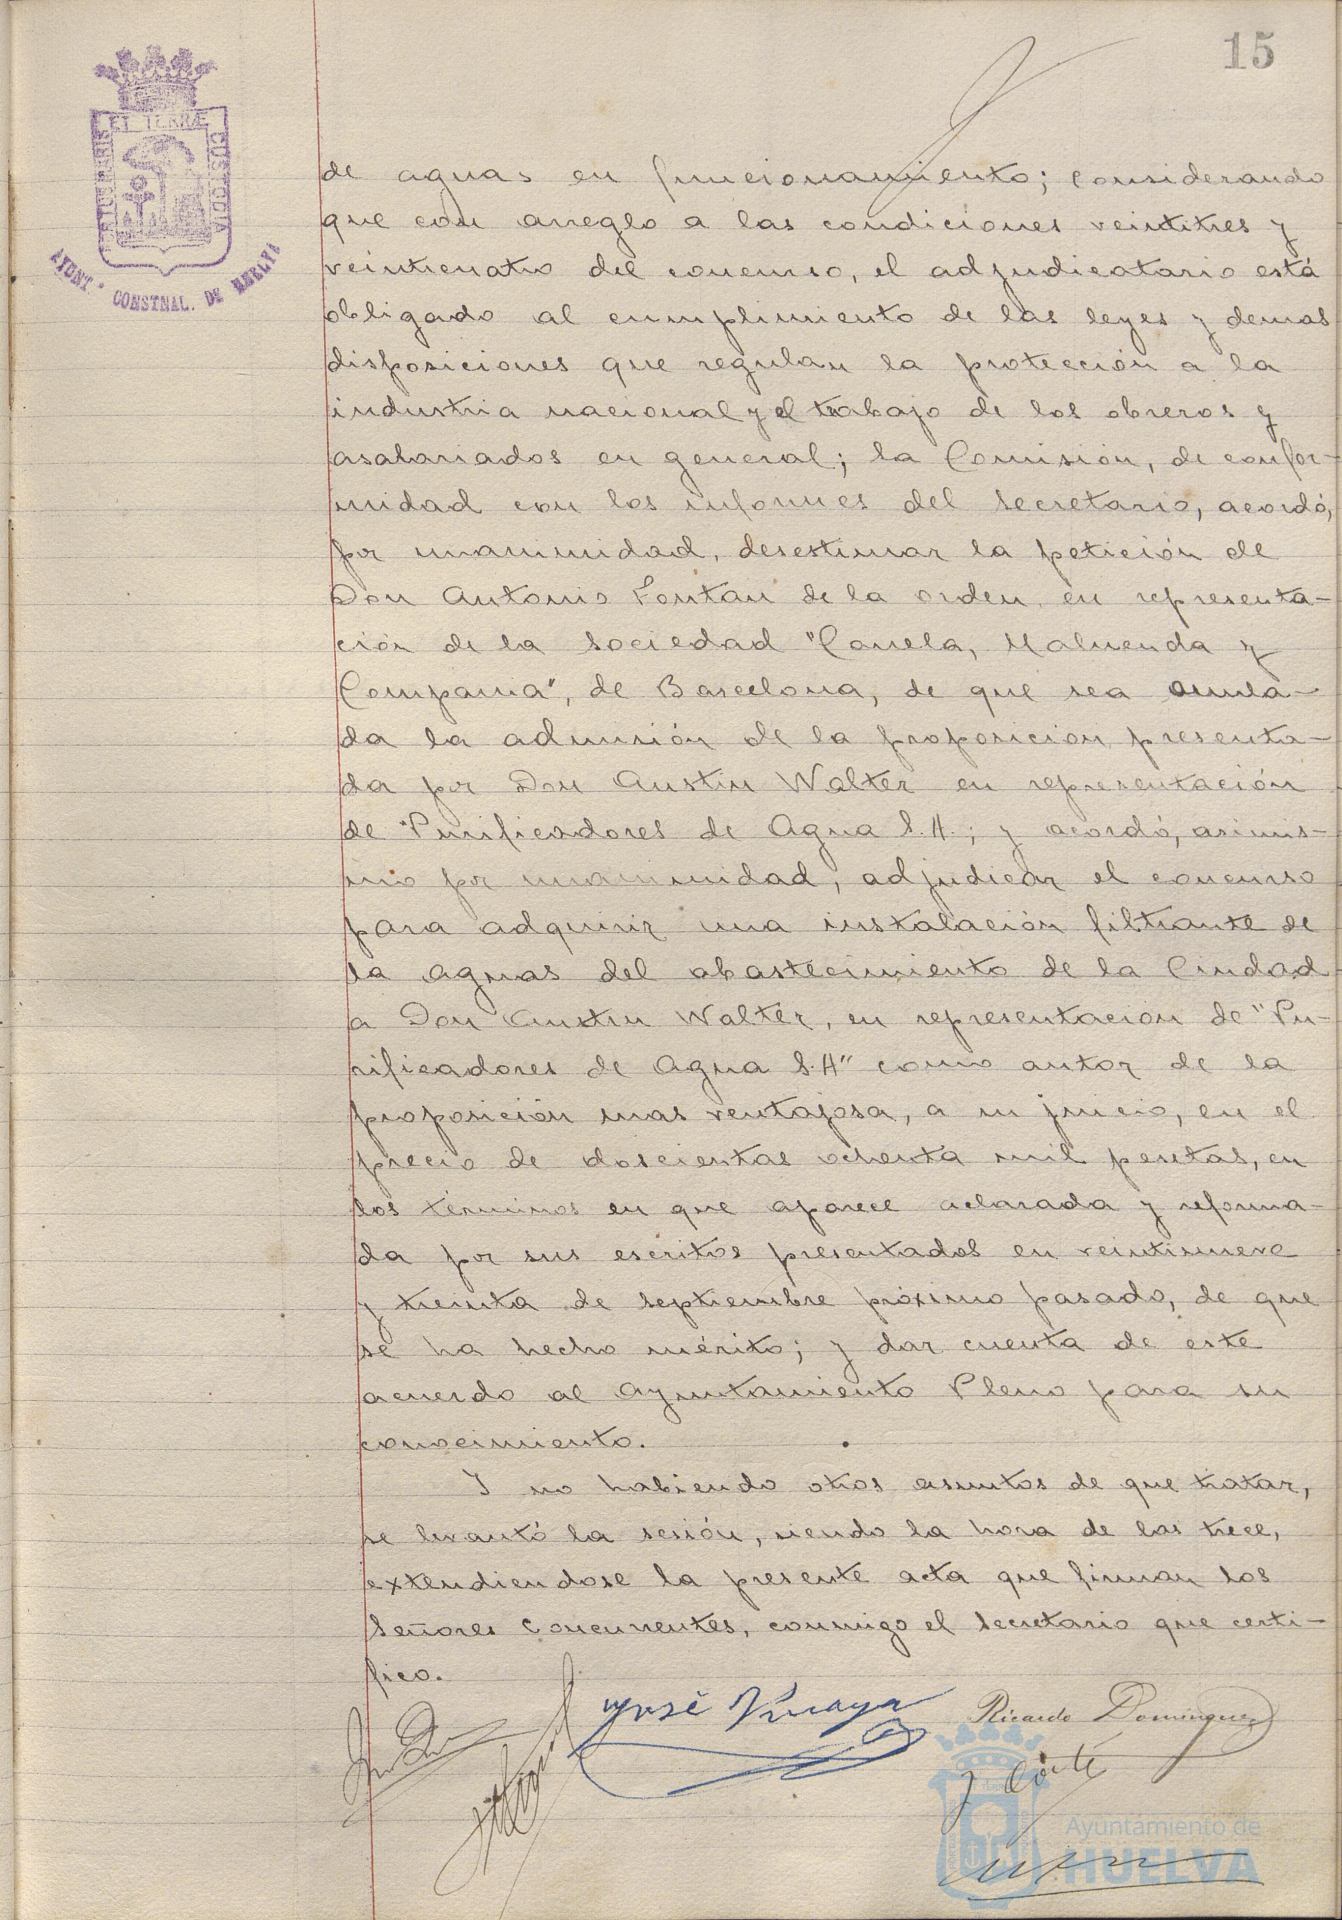 15
PORTUS MARIS
ET TERRÆ
CUSTODIA
AYUNT.º CONSTNAL. DE HUELVA
de aguas en funcionamiento; considerando
que con arreglo a las condiciones veintitres y
veinticuatro del concurso, el adjudicatario está
obligado al cumplimiento de las leyes y demas
disposiciones que regulan la protección a la
industria nacional y el trabajo de los obreros y
asalariados en general; la Comisión, de confor-
midad con los informes del Secretario, acordó,
por unanimidad, desestimar la petición de
Don Antonio Fontan de la orden, en representa-
ción de la Sociedad "Canela, Maluenda y
Compania", de Barcelona, de que sea anula-
da la admisión de la proposicion presenta-
da por Don Austin Walter en representación
de "Purificadores de Agua S.A.; y acordó, asimis-
mo por unanimidad, adjudicar el concurso
para adquirir una instalación filtrante de
la aguas del abastecimiento de la Ciudad
a Don Austin Walter, en representación de "Pu-
rificadores de Agua S.A" como autor de la
proposición mas ventajosa, a su juicio, en el
precio de doscientas ochenta mil pesetas, en
los términos en que aparece aclarada y reforma-
da por sus escritos presentados en veintinueve
y treinta de septiembre próximo pasado, de que
se ha hecho mérito; y dar cuenta de este
acuerdo al Ayuntamiento Pleno para su
conocimiento.
Y no habiendo otros asuntos de que tratar,
se levantó la sesión, siendo la hora de las trece,
extendiendose la presente acta que firman los
Señores Concurrentes, conmigo el Secretario que certi-
fico.
José
Ricardo Dominguez
Ayuntamiento de
HUELVA